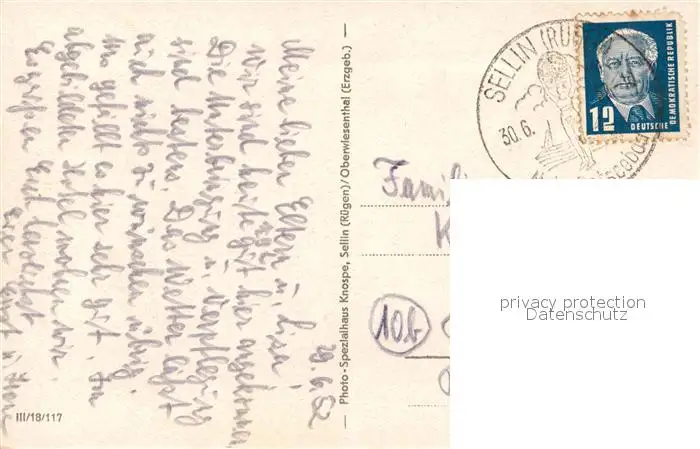 29.6.52
Meine lieben Eltern u. Lisa!
Wir sind heute gut hier angekommen.
Die Unterbringung u. Verpflegung
sind bestens. Das Wetter läßt
auch nichts zu wünschen übrig.
Uns gefällt es hier sehr gut. Im
abgebildeten Hotel wohnen wir.
Es grüßen Euch
III/18/117
Photo-Spezialhaus Knospe, Sellin (Rügen)/Oberwiesenthal (Erzgeb.)
SELLIN (RÜ
30.6.
12
DEUTSCHE
DEMOKRATISCHE REPUBLIK
Famili
K
10b
privacy protection
Datenschutz